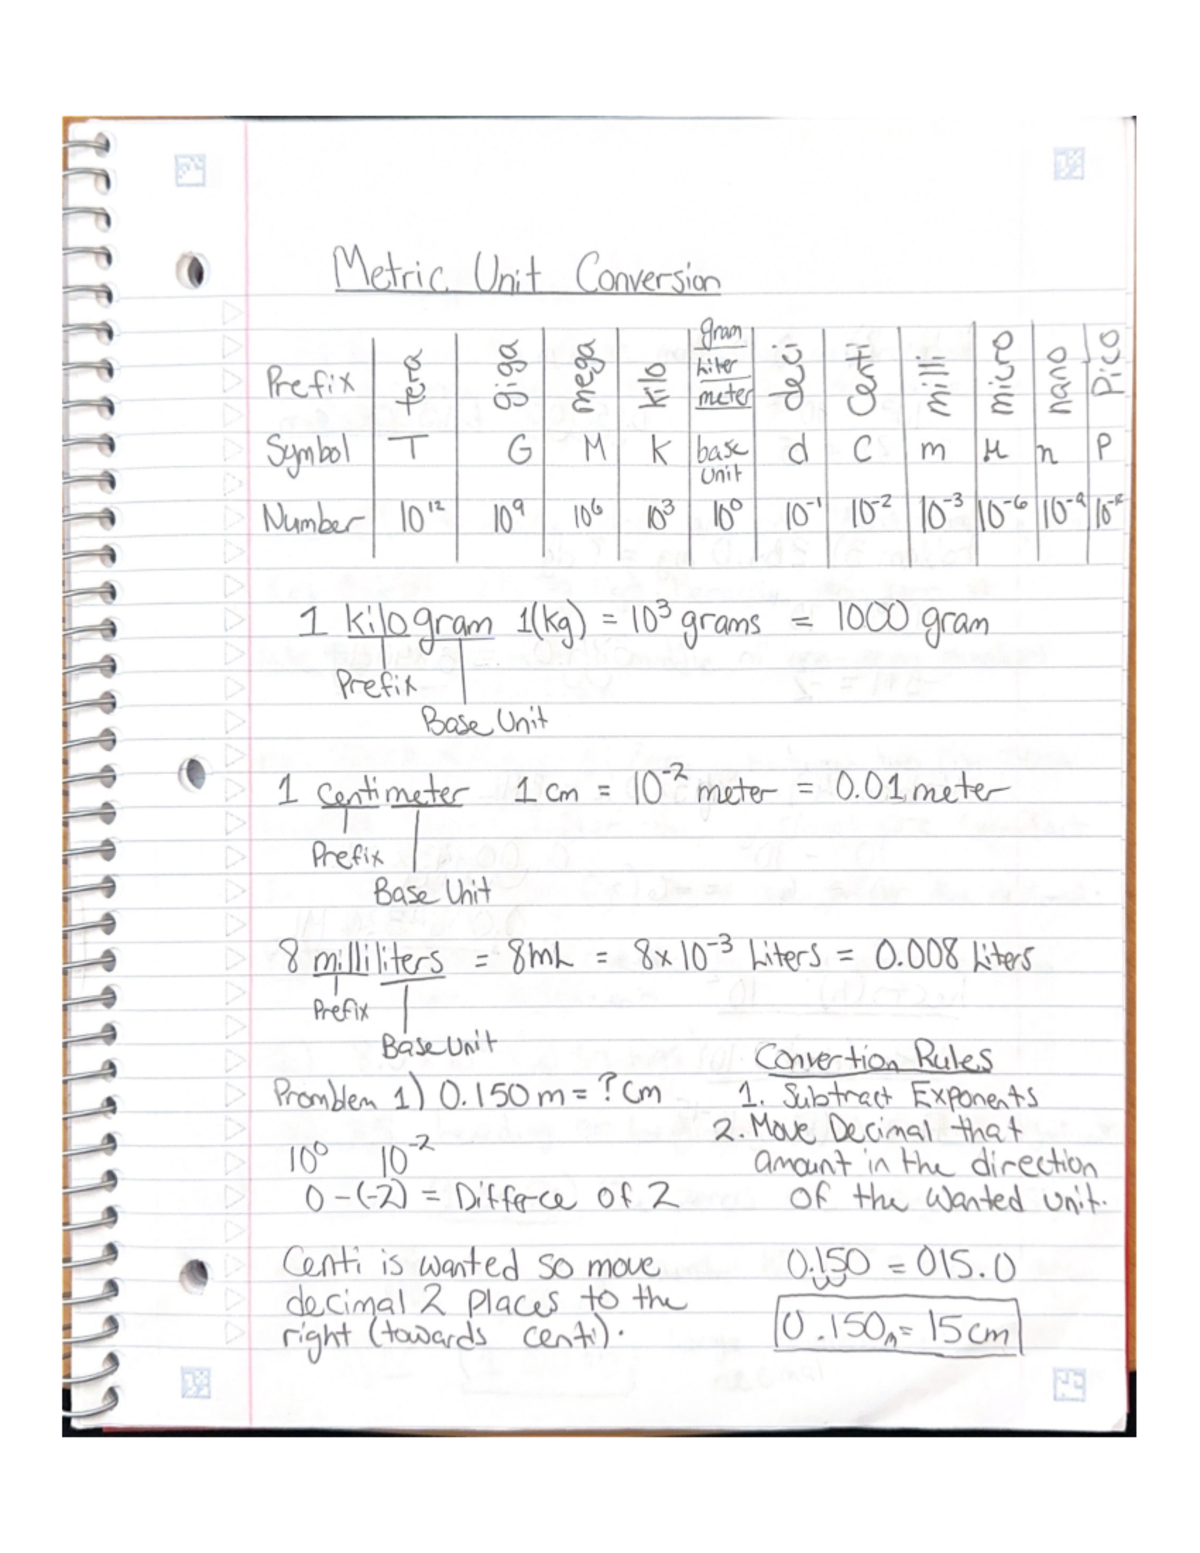 Metric Unit Conversion
Prefix tera giga mega kilo gram liter meter deci centi milli micro nano Pico
Symbol T G M K base unit d C m μ n P
Number 10¹² 10⁹ 10⁶ 10³ 10⁰ 10⁻¹ 10⁻² 10⁻³ 10⁻⁶ 10⁻⁹ 10⁻¹²
1 kilogram 1(kg) = 10³ grams = 1000 gram
Prefix
Base Unit
1 centimeter 1 cm = 10⁻² meter = 0.01 meter
Prefix
Base Unit
8 milliliters = 8mL = 8x10⁻³ Liters = 0.008 Liters
Prefix
Base Unit
Convertion Rules
1. Subtract Exponents
2. Move Decimal that
amount in the direction
of the wanted unit.
Promblem 1) 0.150 m = ? cm
10⁰ 10⁻²
0 - (-2) = Differce of 2
Centi is wanted so move
decimal 2 places to the
right (towards centi).
0.150 = 015.0
0.150m = 15cm